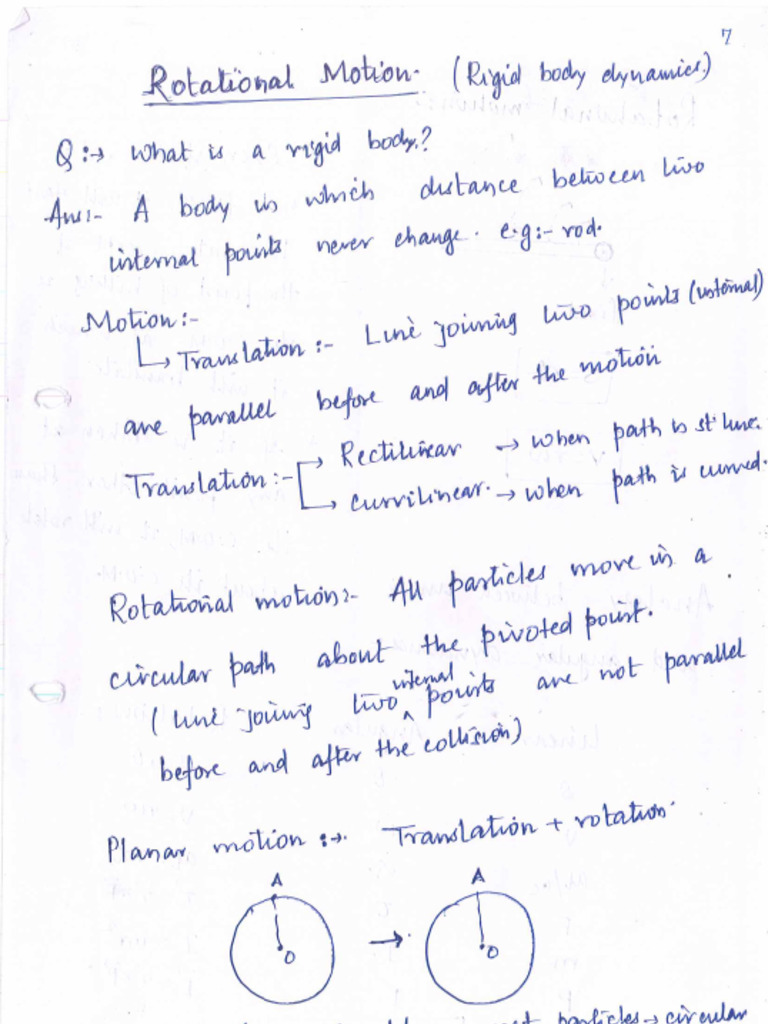 7
Rotational Motion. (Rigid body dynamics)
Q:→ what is a rigid body?
Ans:- A body in which distance between two
internal points never change. e.g:- rod.
Motion:-
↳ Translation:- Line joining two points (internal)
are parallel before and after the motion
Translation:- → Rectilinear → when path is st line.
→ curvilinear. → when path is curved.
Rotational motion:- All particles move in a
circular path about the pivoted point.
(line joining two internal points are not parallel
before and after the collision)
Planar motion:→. Translation + rotation.
A A
O → O
particles → circular